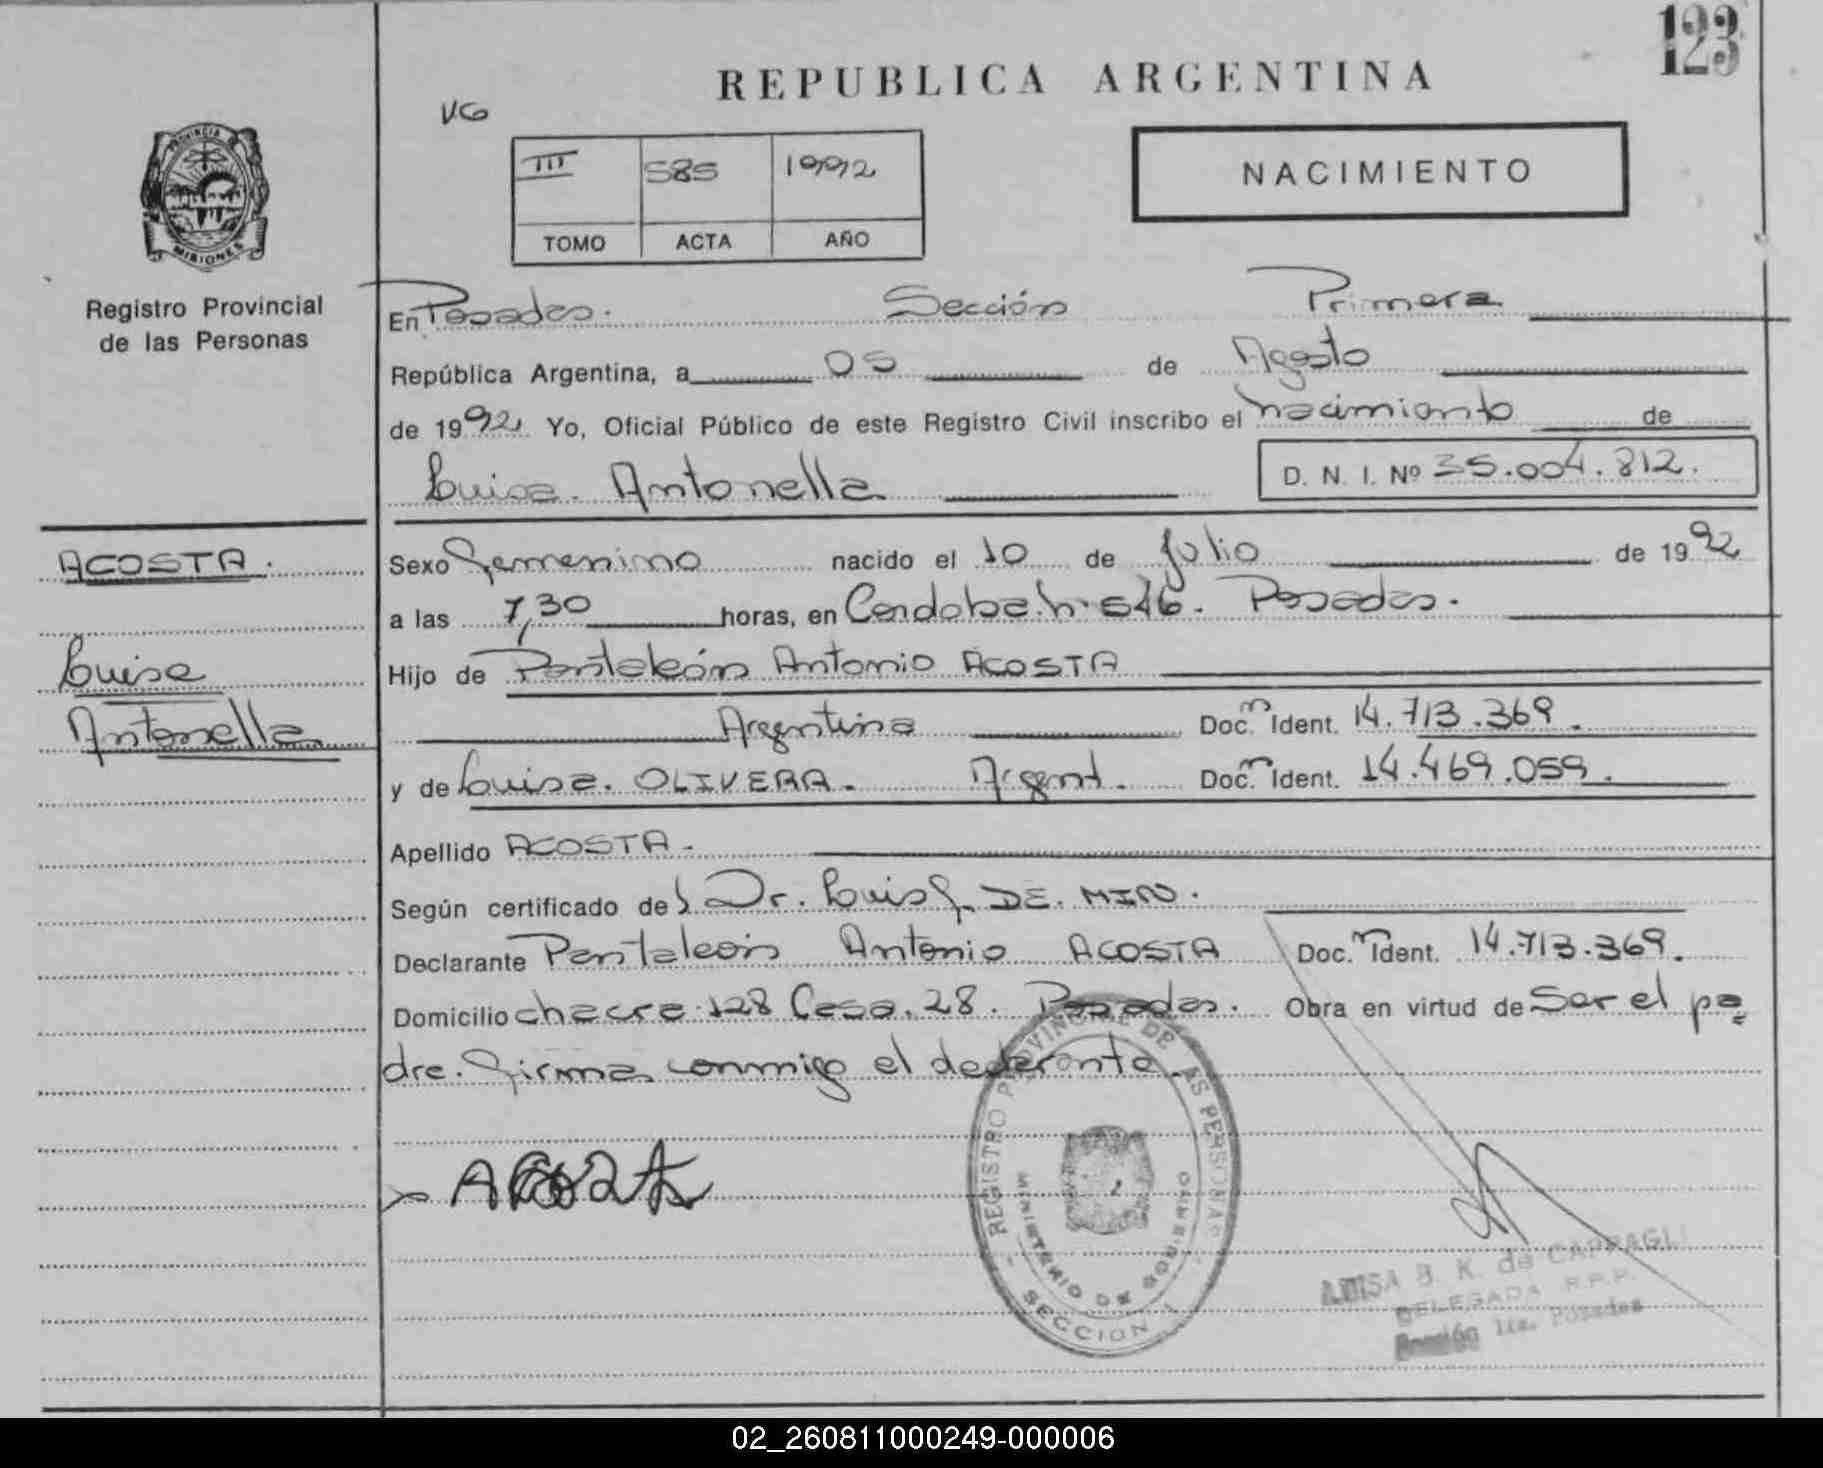 123
REPUBLICA ARGENTINA
VG
III 585 1992
TOMO ACTA AÑO
NACIMIENTO
PROVINCIA
MISIONES
Registro Provincial
de las Personas
En Posadas. Sección Primera
República Argentina, a 05 de Agosto
de 1992 Yo, Oficial Público de este Registro Civil inscribo el nacimiento de
Luisa Antonella D. N. I. Nº 35.004.812.
ACOSTA.
Luisa
Antonella
Sexo femenino nacido el 10 de Julio de 1992
a las 7,30 horas, en Cordoba n° 546. Posadas.
Hijo de Pantaleón Antonio ACOSTA
Argentina Doc. Ident. 14.713.369.
y de Luisa OLIVERA. Argent. Doc. Ident. 14.469.059.
Apellido ACOSTA.
Según certificado del Dr. Luis DE MIN.
Declarante Pantaleón Antonio ACOSTA Doc. Ident. 14.713.369.
Domicilio chacra 128 Casa. 28. Posadas. Obra en virtud de Ser el pa=
dre. firma conmigo el declarante.
REGISTRO PROVINCIAL DE LAS PERSONAS
MINISTERIO DE GOBIERNO
SECCION 1
LUISA B. K. de CAPPAGLI
DELEGADA R.P.P.
Sección 1ra. Posadas
02_260811000249-000006